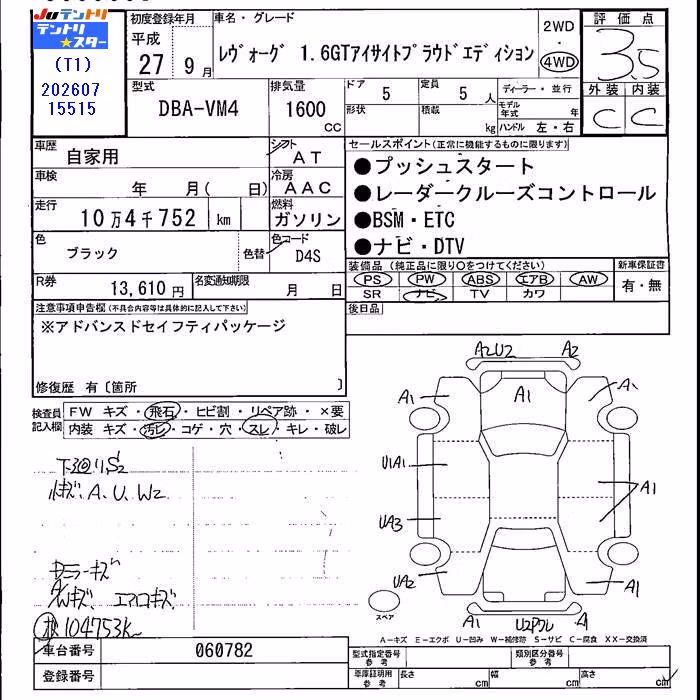 Juテントリ
テントリ
★スター
(T1)
202607
15515
初度登録年月
平成
27 9月
車名・グレード
ﾚｳﾞｫｰｸﾞ 1.6GTアイサイトプラウドエディション
2WD
・
4WD
評価点
3.5
外装 内装
C C
型式
DBA-VM4
排気量
1600
CC
ドア 5
定員 5 人
形状
積載 kg
ディーラー・並行
モデル年式 年
ハンドル 左・右
車歴
自家用
シフト
AT
車検
年 月( 日)
冷房
AAC
走行
10万4千752 km
燃料
ガソリン
色
ブラック
色替
色コード
D4S
R券
13,610円
名変通知期限
月 日
セールスポイント(正常に機能するものに限ります)
●プッシュスタート
●レーダークルーズコントロール
●BSM・ETC
●ナビ・DTV
装備品(純正品に限り○をつけてください)
PS PW ABS エアB AW
SR ナビ TV カワ
新車保証書
有・無
後日品
注意事項申告欄(不具合内容等は具体的に記入して下さい)
※アドバンスドセイフティパッケージ
修復歴 有〔箇所 〕
検査員記入欄
FW キズ・飛石・ヒビ割・リペア跡・×要
内装 キズ・汚レ・コゲ・穴・スレ・キレ・破レ
A.U.W2
ミラーキズ
A/Wキズ、エアロキズ
104753K
A2U2 A2
A1 A1
U1A1 A1
UA3
UA2 A1
A1
スペア
A-キズ E-エクボ U-凹み W-補修跡 S-サビ C-腐食 XX-交換済
車台番号
060782
登録番号
型式指定番号
参考
類別区分番号
参考
車庫証明用
参考
長さ cm
幅 cm
高さ cm